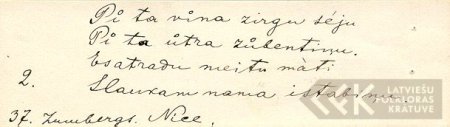 Pi ta vìna zirgu sėju
Pi ta ůtra zůbentiņu.
Esatradu meitu màti
2. Slauxam nama istabiņu.
37. Zumbergs. Nīcē.
LATVIEŠU
FOLKLORAS
KRĀTUVE